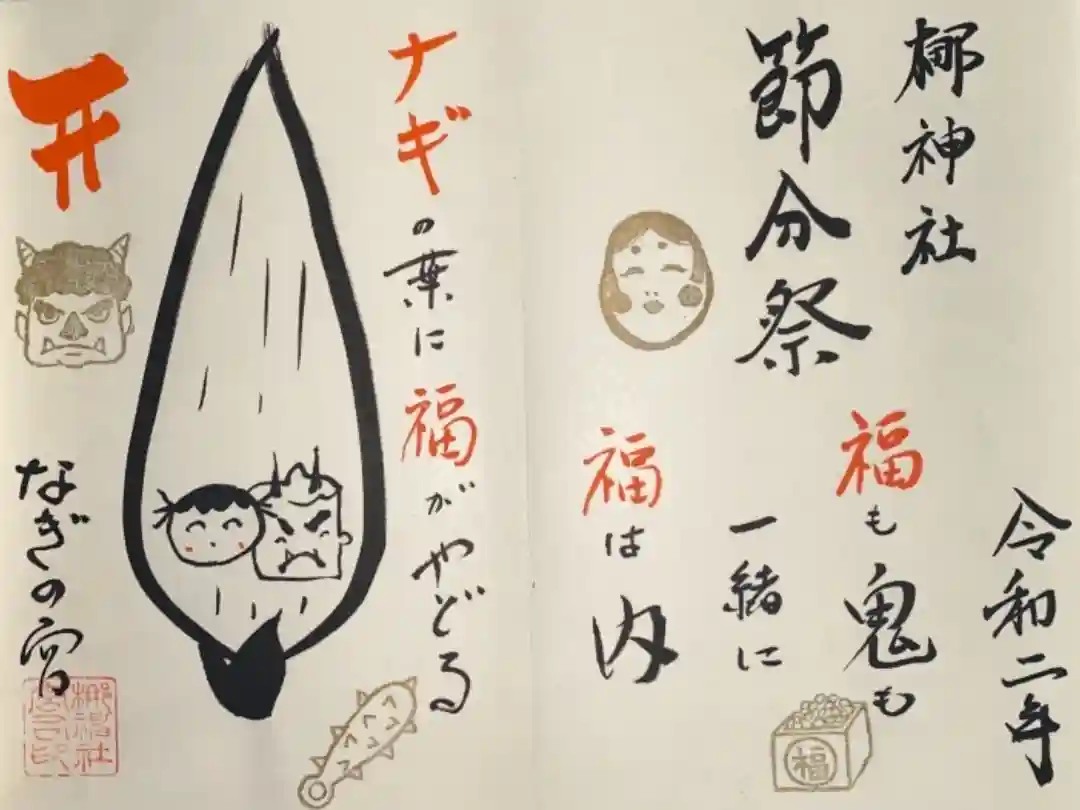 梛神社
節分祭
福も鬼も
一緒に
福は内
令和二年
福
ナギの葉に福がやどる
なぎの宮